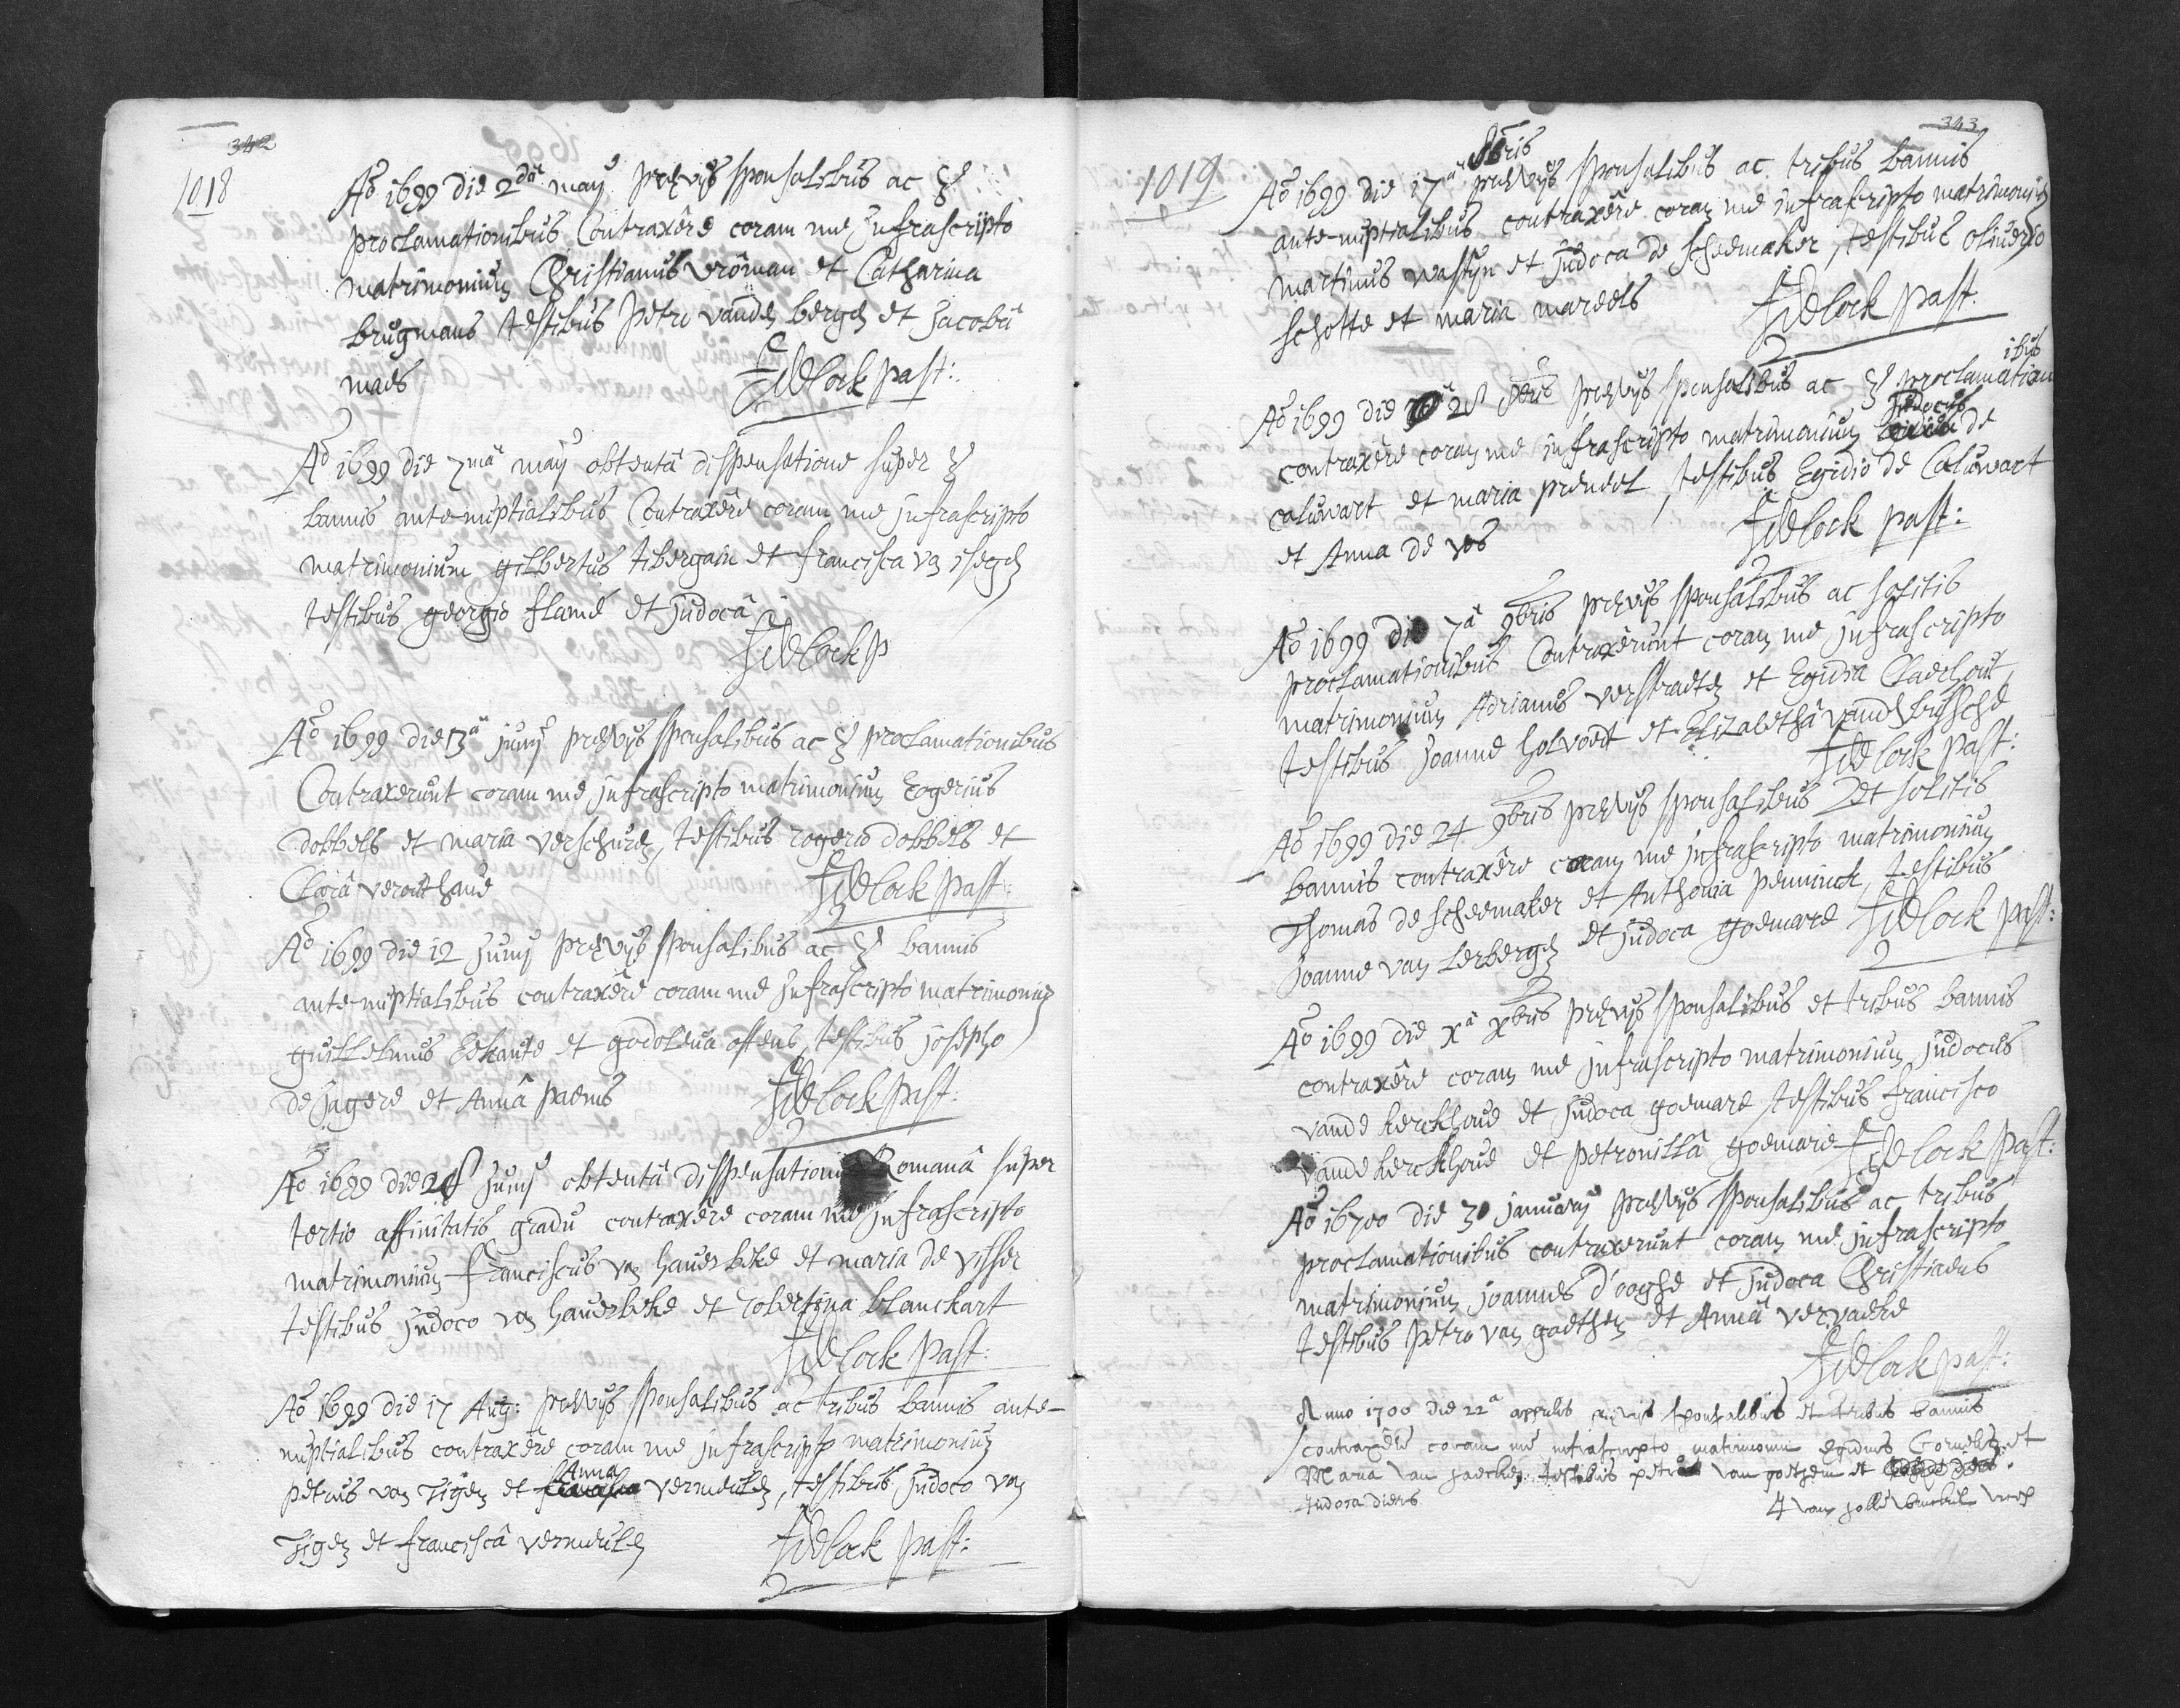 342
1018
Ao 1699 die 2da maij prævijs sponsalibus ac 3
proclamationibus Contraxêre coram me Infrascripto
matrimonium Christianus vroman et Catharina
brugmans testibus petro vanden bergen et Jacobâ
maes
F: De Cock past:
Ao 1699 die 7ma maij obtentâ dispensatione super 3
bannis ante-nuptialibus Contraxêre coram me jnfrascripto
matrimonium gilbertus tibergain et francisca van isegen
testibus georgio flamé et judocâ
F: De Cock p
Ao 1699 die 13a junij prævijs sponsalibus ac 3 proclamationibus
Contraxerunt coram me jnfrascripto matrimonium Rogerius
dobbels et maria verschuren, testibus rogerio dobbels et
Clarâ verouthaue
F: De Cock past:
Ao 1699 die 12 Junij prævijs sponsalibus ac 3 bannis
ante-nuptialibus contraxêre coram me jnfrascripto matrimonium
guillelmus Eekaute et godoleua offens, testibus josepho
de jagere et Annâ paenis
F: De Cock past:
Ao 1699 die Junij obtentâ dispensatione Romanâ super
tertio affinitatis gradu contraxêre coram me jnfrascripto
matrimonium franciscus van hauerbeke et maria de visser
testibus judoco van hauerbeke et robertina blanckart
F: De Cock past:
Ao 1699 die 17 Aug: prævijs sponsalibus ac tribus bannis ante-
nuptialibus contraxêre coram me jnfrascripto matrimonium
Anna
petrus van Tigen et vermeulen, testibus judoco van
Tigen et franciscâ vermeulen
F: De Cock past:
343
1019
8bris
Ao 1699 die 17a prævijs sponsalibus ac tribus bannis
ante-nuptialibus contraxêre coram me infrascripto matrimonium
martinus wastyn et judoca de scheemaker, testibus oliuerio
schotte et maria mareels
F: De Cock past:
ibus
Ao 1699 die 8bris prævijs sponsalibus ac 3 proclamation
judocus
contraxêre coram me infrascripto matrimonium de
caluwart et maria preneel, testibus Egidio de Caluwart
et Anna de vos
F: De Cock past:
Ao 1699 die 7a 9bris prævijs sponsalibus ac solitis
proclamationibus Contraxerunt coram me jnfrascripto
matrimonium Adrianus verstraeten et Egidia Claerhout,
testibus joanne holvoedt et Elizabethâ vanden bussche
F: De Cock past:
Ao 1699 die 24 9bris prævijs sponsalibus et solitis
bannis contraxêre coram me jnfrascripto matrimonium
Thomas de scheemaker et Anthonia penninck, testibus
joanne van Lerbergen et judoca goemare F: De Cock past:
Ao 1699 die xa xbris prævijs sponsalibus et tribus bannis
contraxêre coram me jnfrascripto matrimonium judocus
vande kerckhoue et judoca goemare testibus francisco
vande kerckhoue et petronillâ goemare F: De Cock past:
Ao 16700 die 30 januarij prævijs sponsalibus ac tribus
proclamationibus contraxerunt coram me jnfrascripto
matrimonium joannes d'ooghe et judoca Christiaens
testibus petro van goethem et Annâ vervaeke
F: De Cock past:
Anno 1700 die 22a apprilis prævijs sponsalibus et tribus bannis
contraxêre coram me infrascripto matrimonium egidius Cornelis et
Maria van haecken testibus petrus van goethem et
Judoca diers